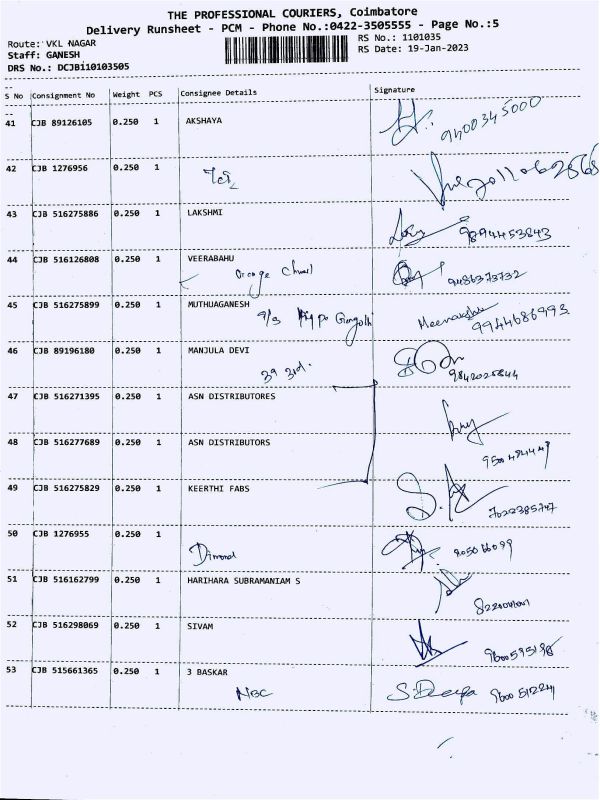 THE PROFESSIONAL COURIERS, Coimbatore
Delivery Runsheet - PCM - Phone No.:0422-3505555 - Page No.:5
Route: VKL NAGAR
RS No.: 1101035
Staff: GANESH
RS Date: 19-Jan-2023
DRS No.: DCJB110103505
S No Consignment No Weight PCS Consignee Details Signature
41 CJB 89126105 0.250 1 AKSHAYA
9400345000
42 CJB 1276956 0.250 1
43 CJB 516275886 0.250 1 LAKSHMI
9894453843
44 CJB 516126808 0.250 1 VEERABAHU
9486373732
45 CJB 516275899 0.250 1 MUTHUAGANESH
Meenakshi
9944686993
46 CJB 89196180 0.250 1 MANJULA DEVI
9842025844
47 CJB 516271395 0.250 1 ASN DISTRIBUTORES
48 CJB 516277689 0.250 1 ASN DISTRIBUTORS
49 CJB 516275829 0.250 1 KEERTHI FABS
7022385747
50 CJB 1276955 0.250 1
51 CJB 516162799 0.250 1 HARIHARA SUBRAMANIAM S
52 CJB 516298069 0.250 1 SIVAM
53 CJB 515661365 0.250 1 3 BASKAR
NBC S. Deepa